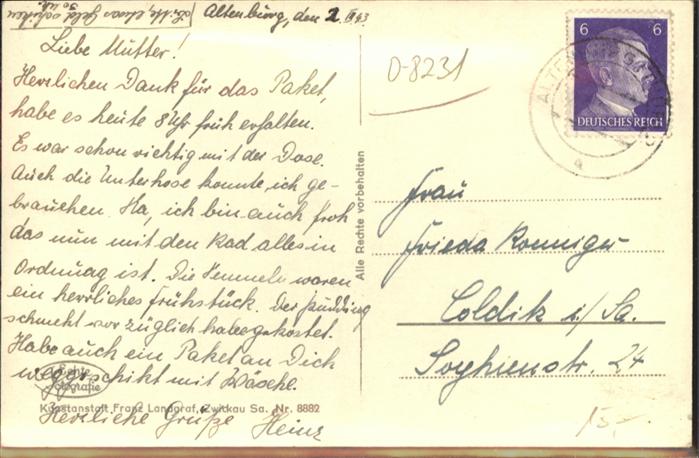 Bitte, etwas Geld schicken
Altenburg, den 2. III 43
Liebe Mutter!
Herzlichen Dank für das Paket,
habe es heute 8 Uhr früh erhalten.
Es war schon richtig mit der Dose.
Auch die Unterhose konnte ich ge-
brauchen. Na, ich bin auch froh
das nun mit den Rad alles in
Ordnung ist. Die Semmeln waren
ein herrliches Frühstück. Der Pudding
schmekt vorzüglich habe gekostet.
Habe auch ein Paket an Dich
weggeschikt mit Wäsche.
Herzliche Grüße Heinz
Echte
Fotografie
Kunstanstalt Franz Landgraf, Zwickau Sa. Nr. 8882
Alle Rechte vorbehalten
0-8231
6 6
DEUTSCHES REICH
ALTENBURG
a
Frau
Frieda
Colditz i/Sa.
Sophienstr. 24
15,-